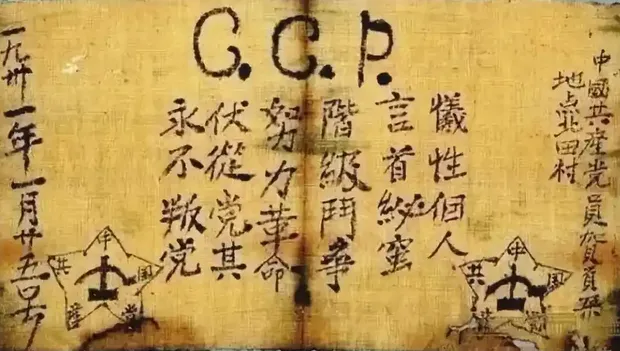 C.C.P.
中國共產党員賀頁朶
地点北田村
犧性個人
言首秘蜜
階級鬥爭
努力革命
伏從党其
永不叛党
一九卅一年一月廿五日
中国共產党
中国共產党